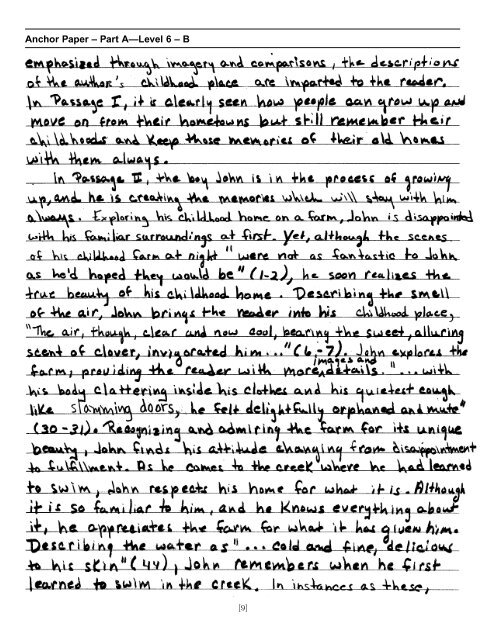 Anchor Paper – Part A—Level 6 – B
emphasized through imagery and comparisons, the descriptions
of the author's childhood place are imparted to the reader.
In Passage I, it is clearly seen how people can grow up and
move on from their hometowns but still remember their
childhoods and keep those memories of their old homes
with them always.
In Passage II, the boy John is in the process of growing
up, and he is creating the memories which will stay with him
always. Exploring his childhood home on a farm, John is disappointed
with his familiar surroundings at first. Yet, although the scenes
of his childhood farm at night "were not as fantastic to John
as he'd hoped they would be" (1-2), he soon realizes the
true beauty of his childhood home. Describing the smell
of the air, John brings the reader into his childhood place,
"The air, though, clear and now cool, bearing the sweet, alluring
scent of clover, invigorated him..." (6-7). John explores the
farm, providing the reader with more images and details. "...with
his body clattering inside his clothes and his quietest cough
like slamming doors, he felt delightfully orphaned and mute"
(30-31). Recognizing and admiring the farm for its unique
beauty, John finds his attitude changing from disappointment
to fulfillment. As he comes to the creek where he had learned
to swim, John respects his home for what it is. Although
it is so familiar to him, and he knows everything about
it, he appreciates the farm for what it has given him.
Describing the water as "...cold and fine, delicious
to his skin" (44), John remembers when he first
learned to swim in the creek. In instances as these,
[9]